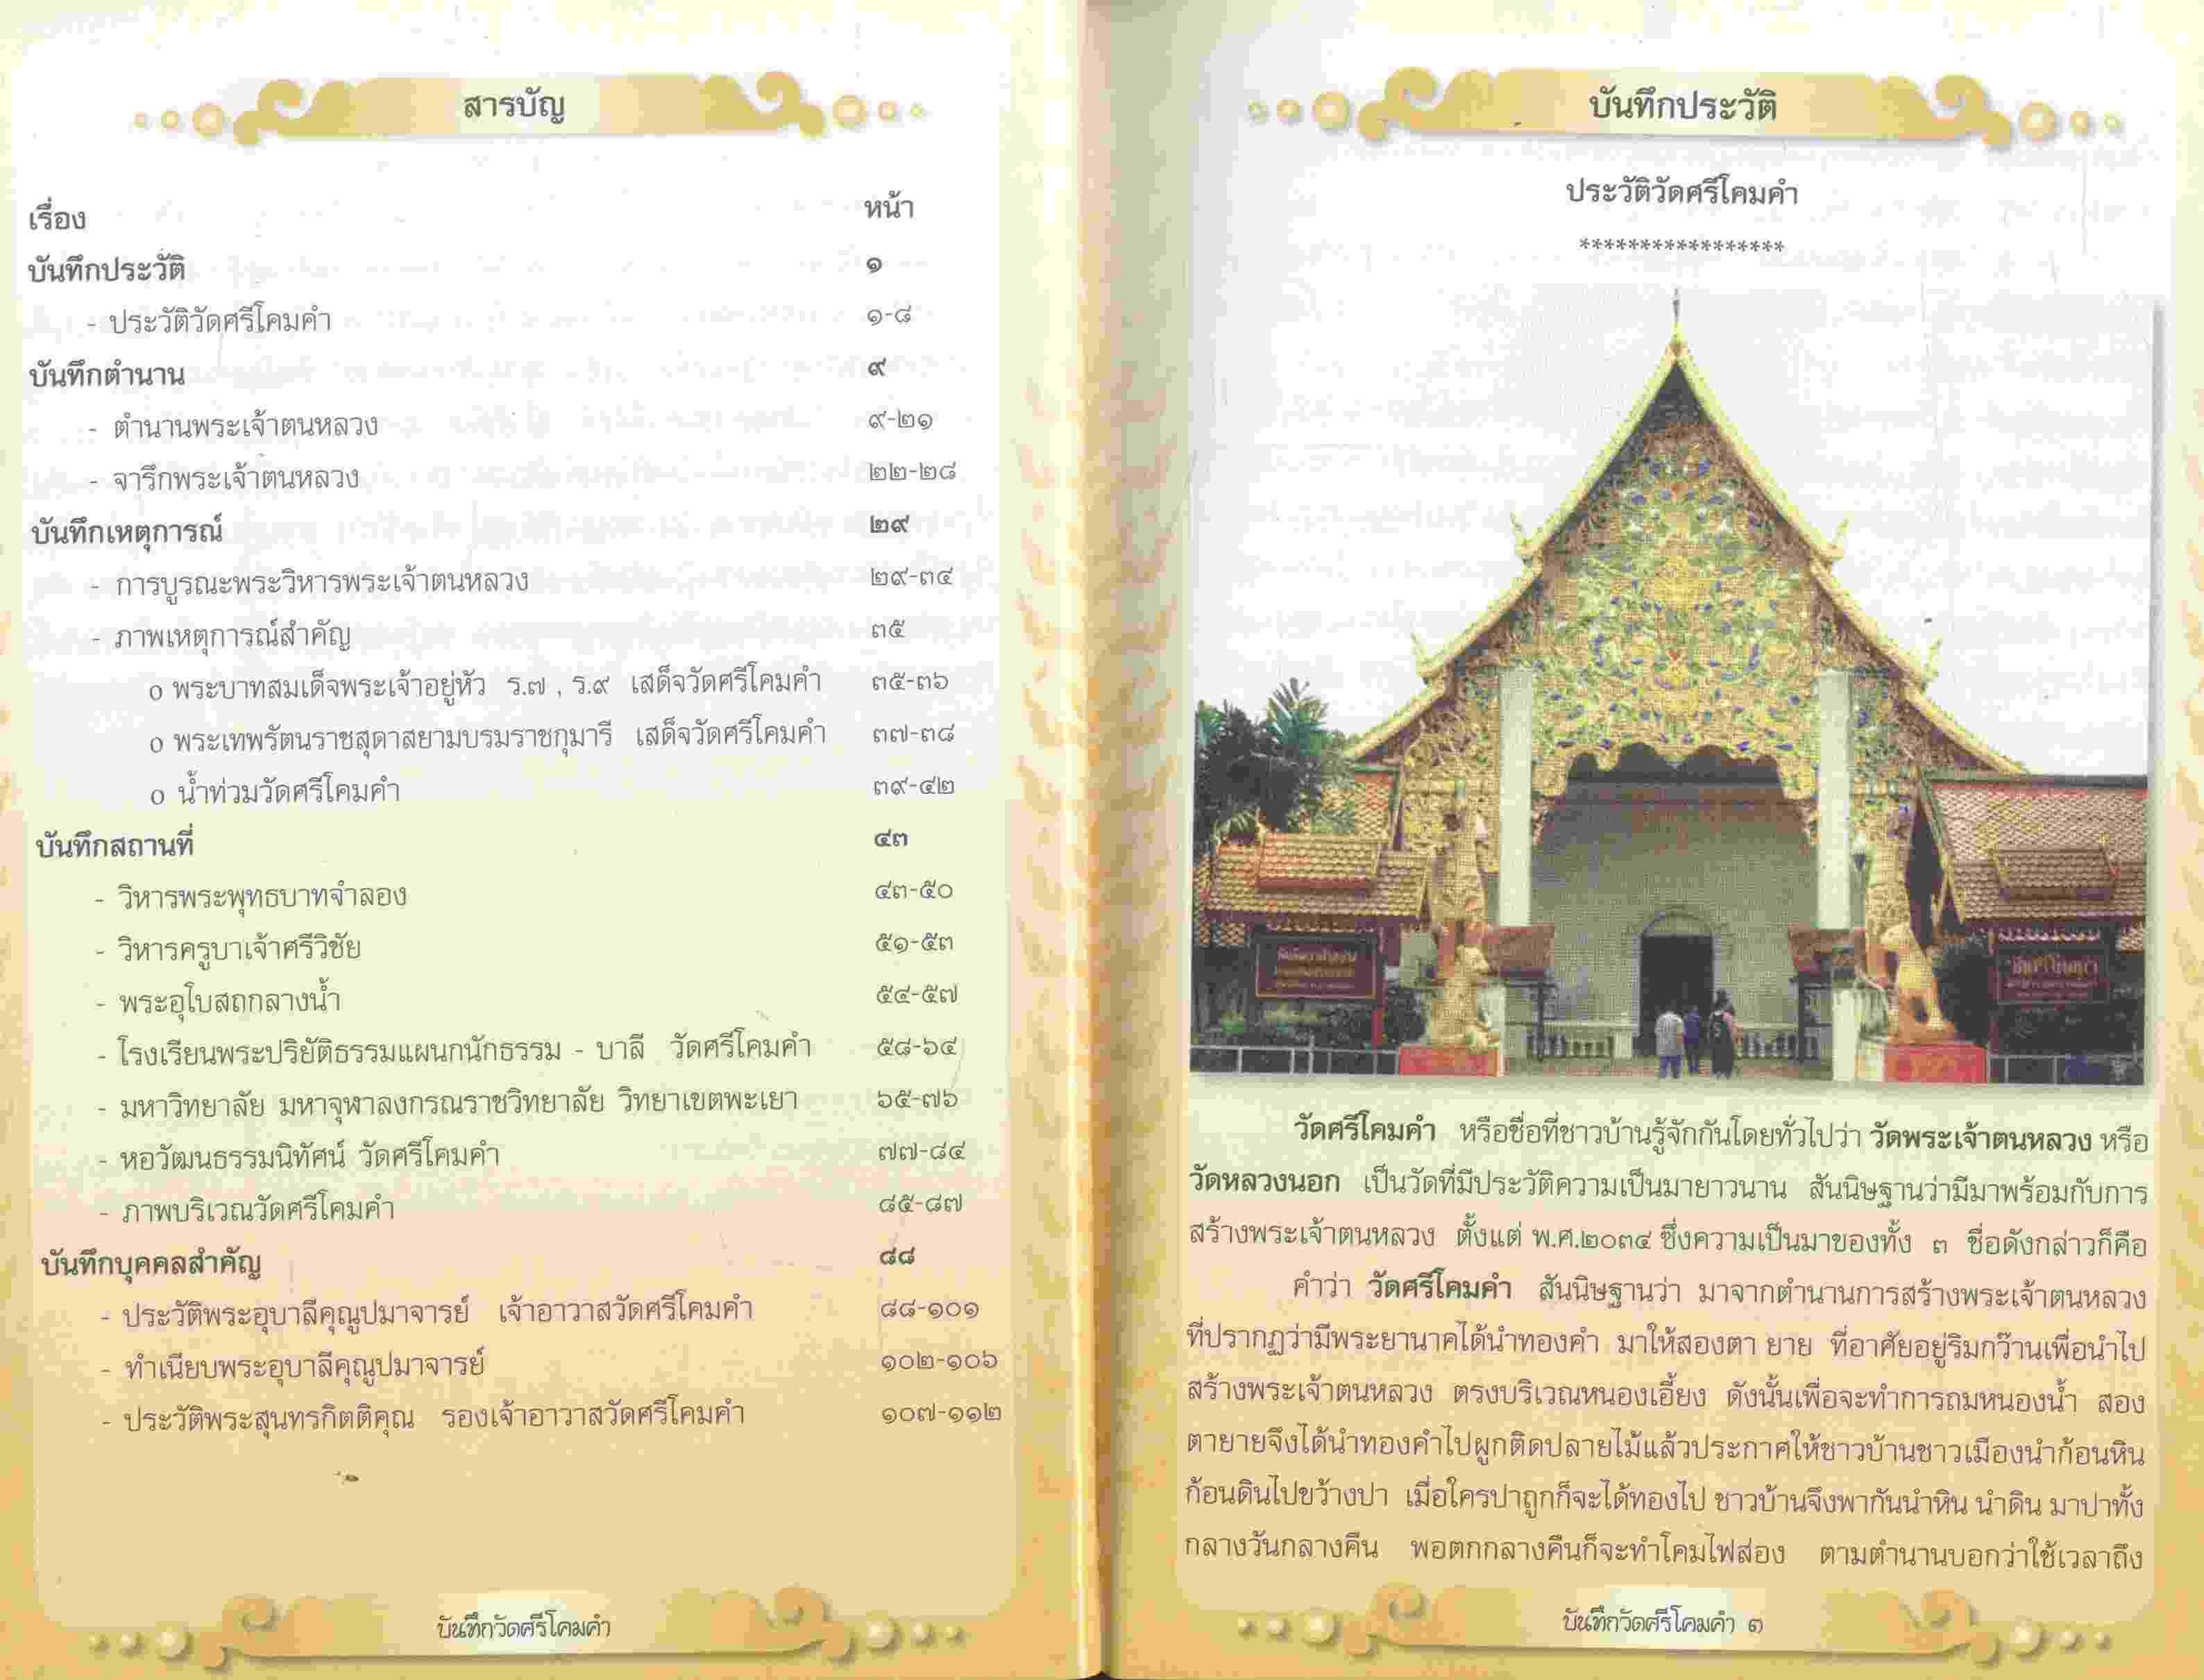 สารบัญ
เรื่อง หน้า
บันทึกประวัติ ๑
- ประวัติวัดศรีโคมคำ ๑-๘
บันทึกตำนาน ๙
- ตำนานพระเจ้าตนหลวง ๙-๒๑
- จารึกพระเจ้าตนหลวง ๒๒-๒๘
บันทึกเหตุการณ์ ๒๙
- การบูรณะพระวิหารพระเจ้าตนหลวง ๒๙-๓๔
- ภาพเหตุการณ์สำคัญ ๓๕
o พระบาทสมเด็จพระเจ้าอยู่หัว ร.๗ , ร.๙ เสด็จวัดศรีโคมคำ ๓๕-๓๖
o พระเทพรัตนราชสุดาสยามบรมราชกุมารี เสด็จวัดศรีโคมคำ ๓๗-๓๘
o น้ำท่วมวัดศรีโคมคำ ๓๙-๔๒
บันทึกสถานที่ ๔๓
- วิหารพระพุทธบาทจำลอง ๔๓-๕๐
- วิหารครูบาเจ้าศรีวิชัย ๕๑-๕๓
- พระอุโบสถกลางน้ำ ๕๔-๕๗
- โรงเรียนพระปริยัติธรรมแผนกนักธรรม - บาลี วัดศรีโคมคำ ๕๘-๖๔
- มหาวิทยาลัย มหาจุฬาลงกรณราชวิทยาลัย วิทยาเขตพะเยา ๖๕-๗๖
- หอวัฒนธรรมนิทัศน์ วัดศรีโคมคำ ๗๗-๘๔
- ภาพบริเวณวัดศรีโคมคำ ๘๕-๘๗
บันทึกบุคคลสำคัญ ๘๘
- ประวัติพระอุบาลีคุณูปมาจารย์ เจ้าอาวาสวัดศรีโคมคำ ๘๘-๑๐๑
- ทำเนียบพระอุบาลีคุณูปมาจารย์ ๑๐๒-๑๐๖
- ประวัติพระสุนทรกิตติคุณ รองเจ้าอาวาสวัดศรีโคมคำ ๑๐๗-๑๑๒
บันทึกวัดศรีโคมคำ
บันทึกประวัติ
ประวัติวัดศรีโคมคำ
*****************
วัดศรีโคมคำ หรือชื่อที่ชาวบ้านรู้จักกันโดยทั่วไปว่า วัดพระเจ้าตนหลวง หรือ
วัดหลวงนอก เป็นวัดที่มีประวัติความเป็นมายาวนาน สันนิษฐานว่ามีมาพร้อมกับการ
สร้างพระเจ้าตนหลวง ตั้งแต่ พ.ศ.๒๐๓๔ ซึ่งความเป็นมาของทั้ง ๓ ชื่อดังกล่าวก็คือ
คำว่า วัดศรีโคมคำ สันนิษฐานว่า มาจากตำนานการสร้างพระเจ้าตนหลวง
ที่ปรากฏว่ามีพระยานาคได้นำทองคำ มาให้สองตา ยาย ที่อาศัยอยู่ริมกว๊านเพื่อนำไป
สร้างพระเจ้าตนหลวง ตรงบริเวณหนองเอี้ยง ดังนั้นเพื่อจะทำการถมหนองน้ำ สอง
ตายายจึงได้นำทองคำไปผูกติดปลายไม้แล้วประกาศให้ชาวบ้านชาวเมืองนำก้อนหิน
ก้อนดินไปขว้างปา เมื่อใครปาถูกก็จะได้ทองไป ชาวบ้านจึงพากันนำหิน นำดิน มาปาทั้ง
กลางวันกลางคืน พอตกกลางคืนก็จะทำโคมไฟส่อง ตามตำนานบอกว่าใช้เวลาถึง
บันทึกวัดศรีโคมคำ ๑